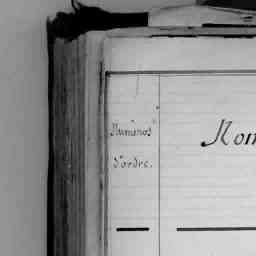 Numéros
d'ordre.
Nom